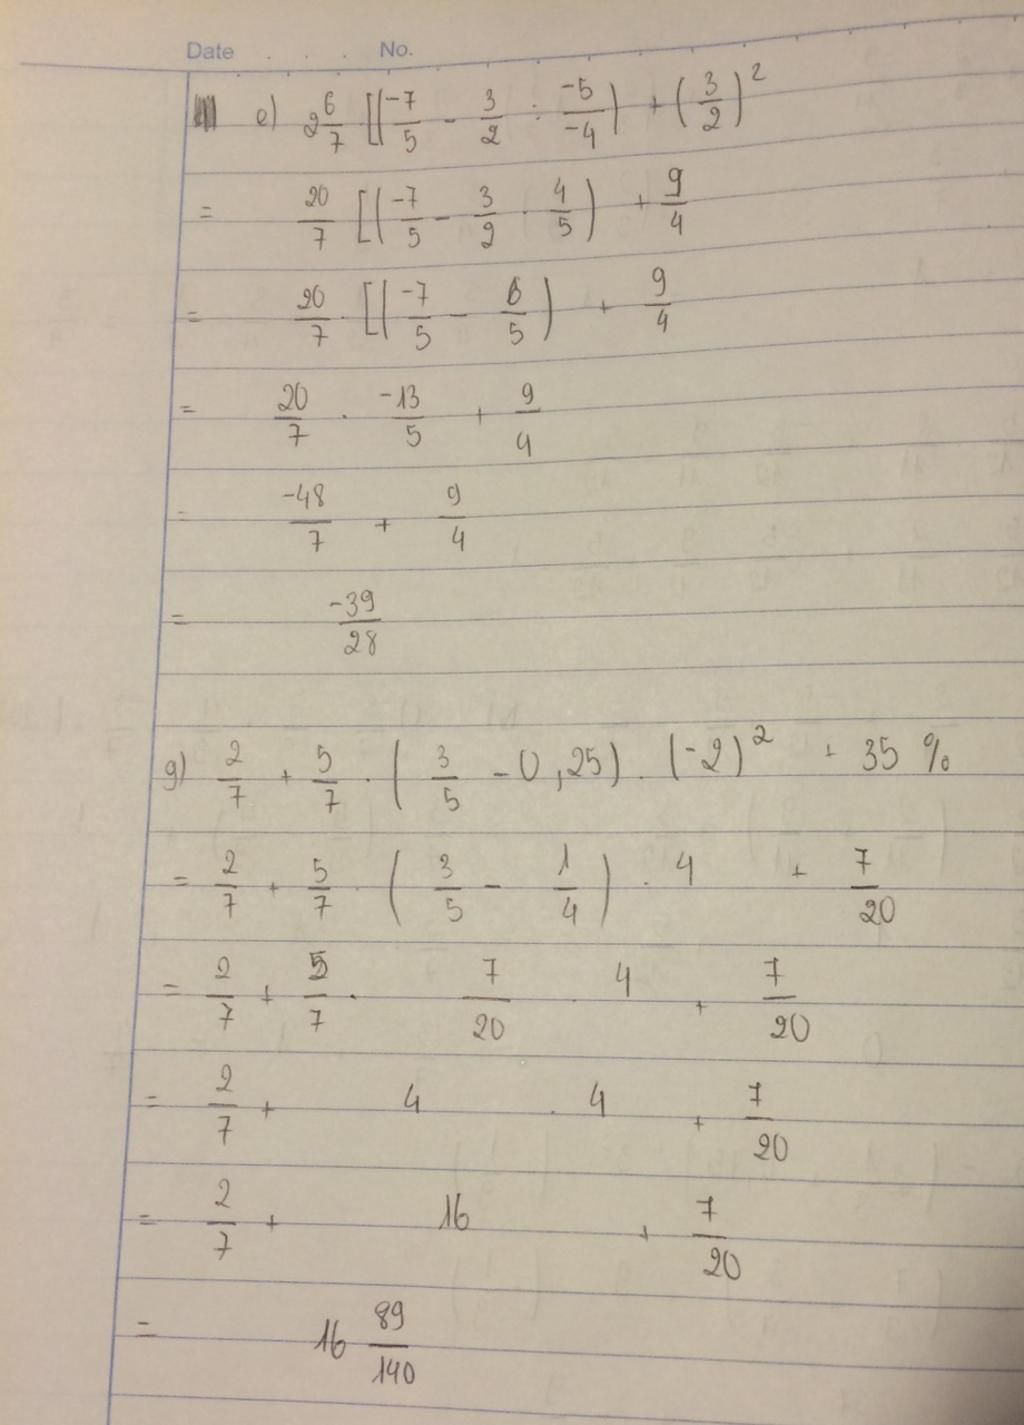 Date . . . No.
e) 2 6/7 [(-7/5 - 3/2 : -5/-4) + (3/2)²
= 20/7 [(-7/5 - 3/2 . 4/5) + 9/4
= 20/7 . [(-7/5 - 6/5) + 9/4
= 20/7 . -13/5 + 9/4
= -48/7 + 9/4
= -39/28
g) 2/7 + 5/7 . (3/5 - 0,25) . (-2)² + 35 %
= 2/7 + 5/7 . (3/5 - 1/4) . 4 + 7/20
= 2/7 + 5/7 . 7/20 . 4 + 7/20
= 2/7 + 4 . 4 + 7/20
= 2/7 + 16 + 7/20
= 16 89/140